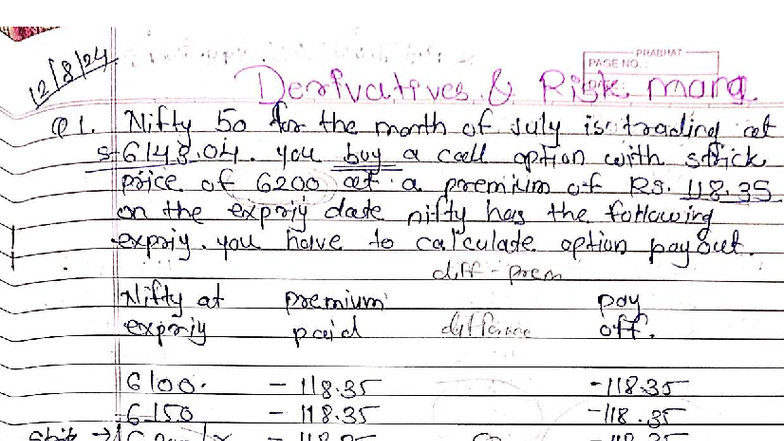 12/8/24
PRABHAT
PAGE NO.:
Derivatives & Risk mang.
Q1. Nifty 50 for the month of July is trading at
S-6148.04. you buy a call option with strick
price of 6200 at a premium of Rs. 118.35
on the expriy date nifty has the following
expriy. you have to calculate option payout.
diff - prem
Nifty at premium pay
expriy paid diffrance off.
6100. - 118.35 -118.35
6150 - 118.35 -118.35